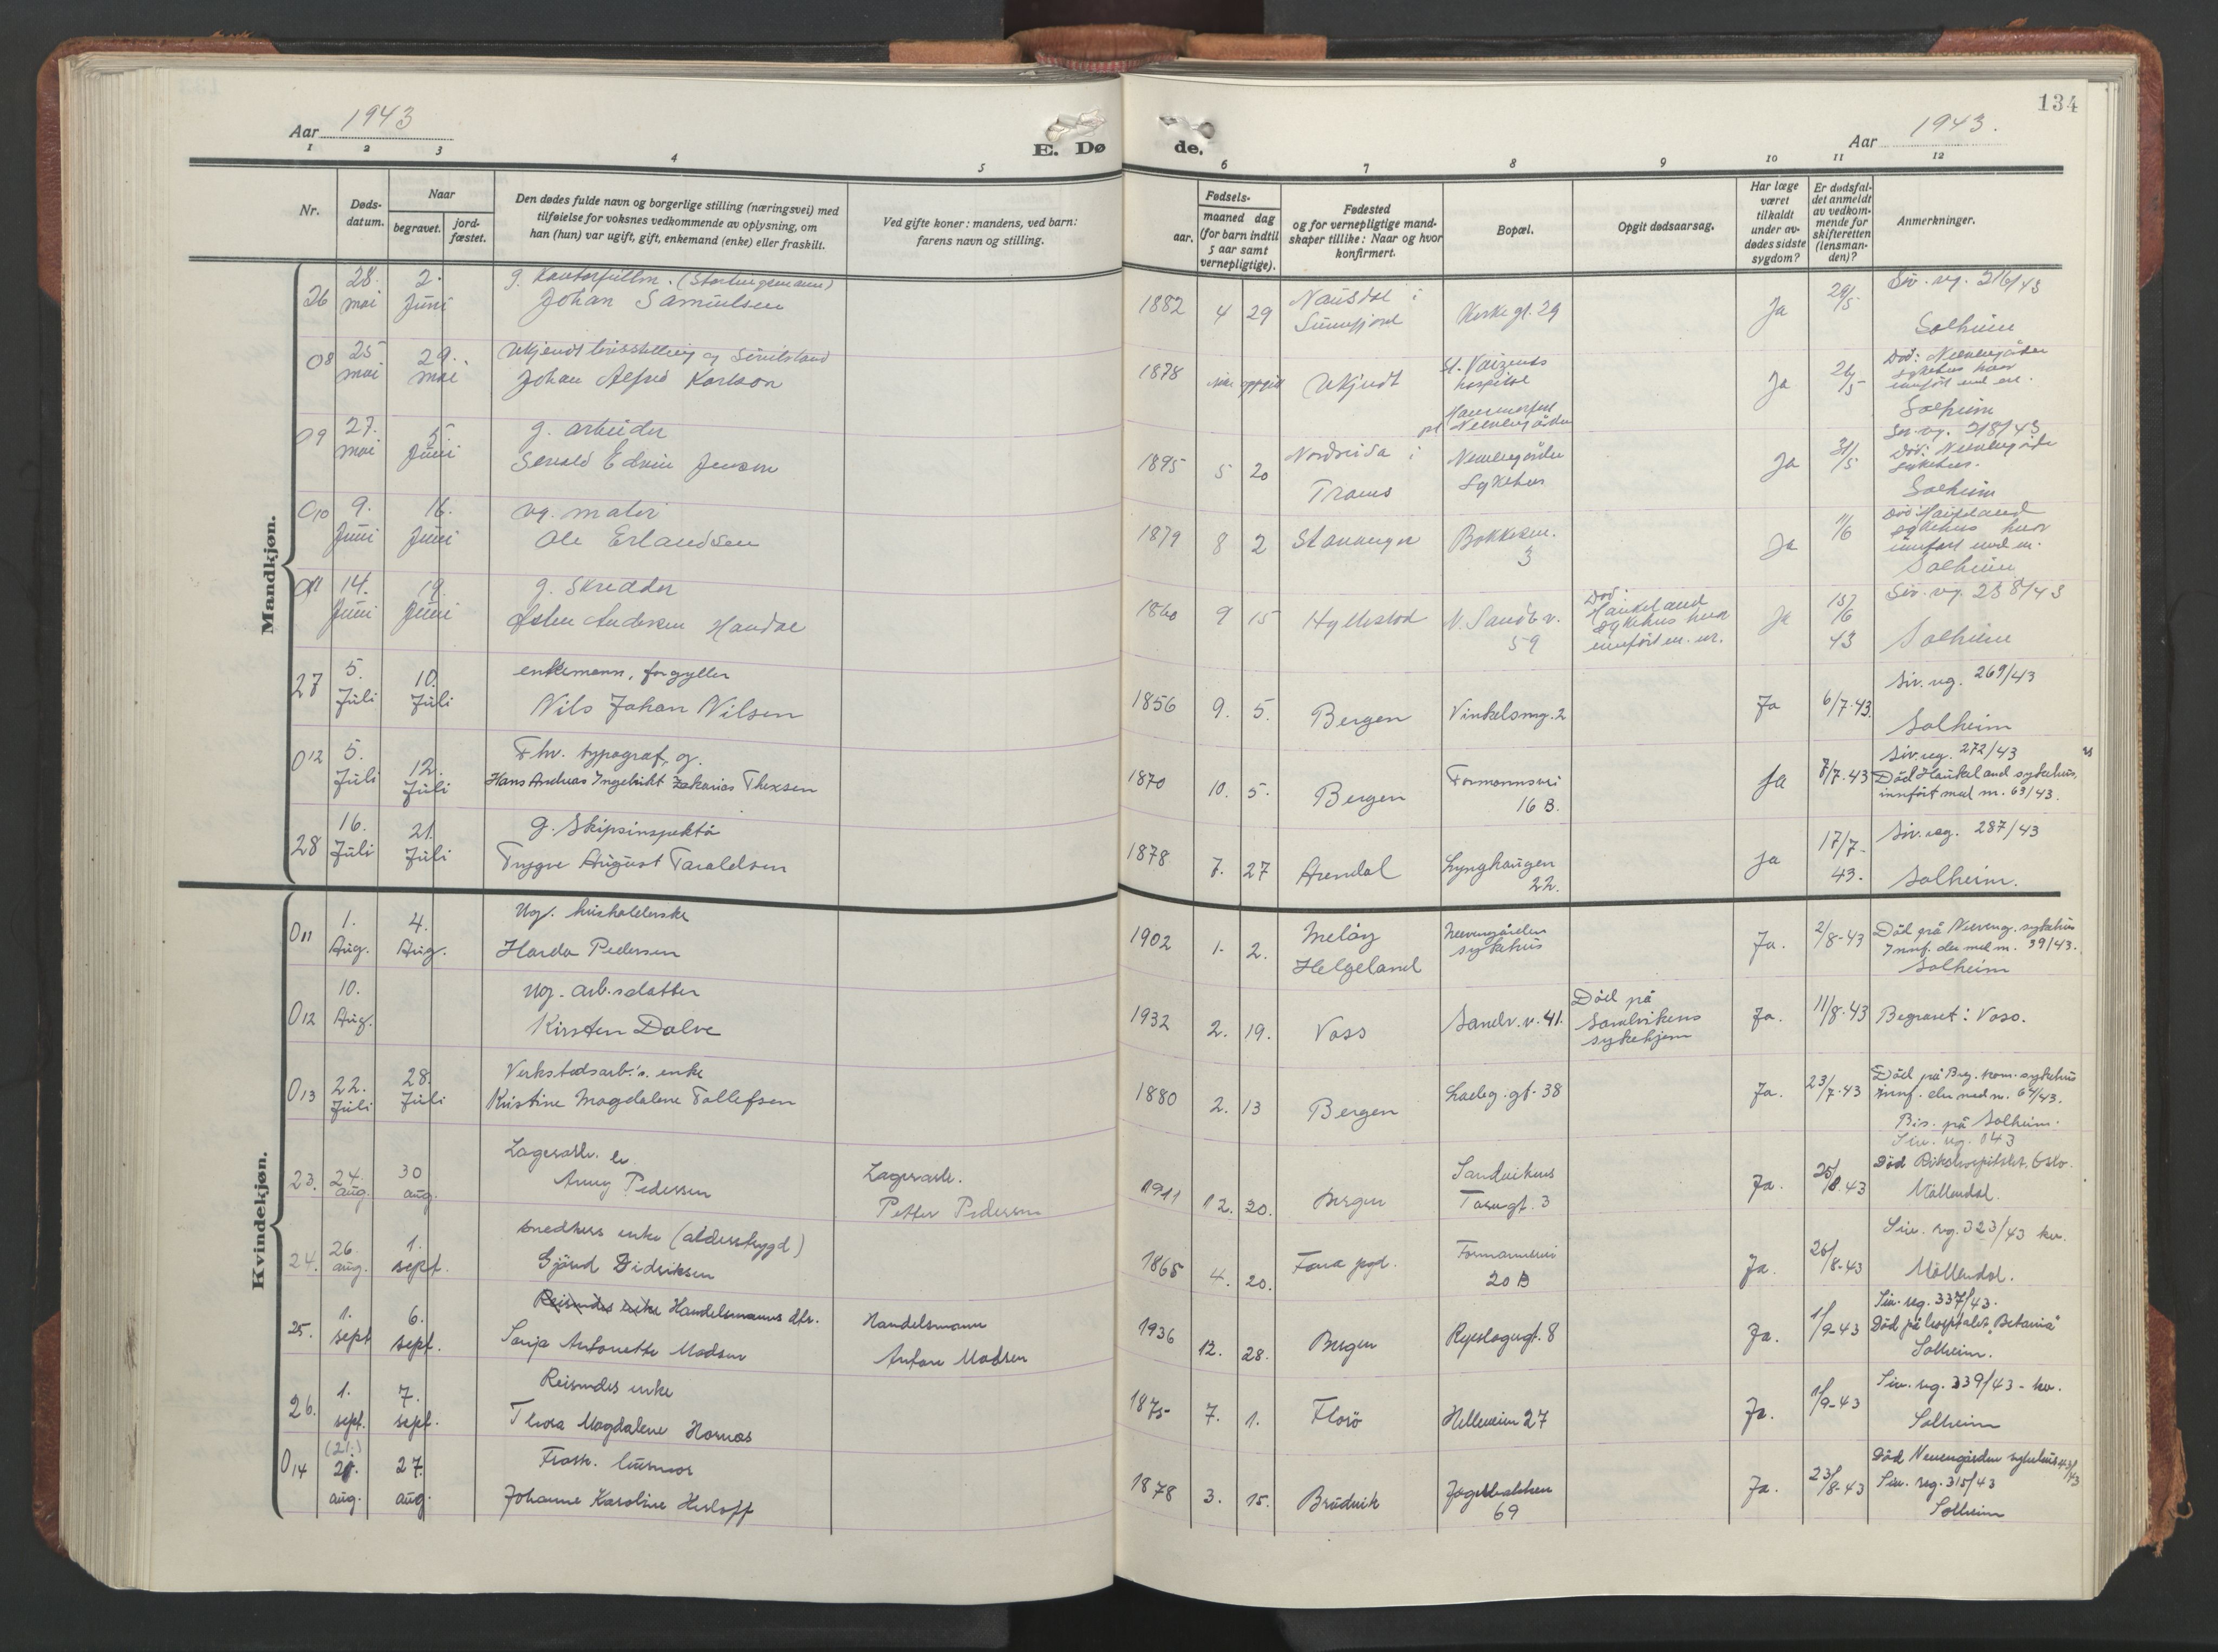 134
Aar 1943
E. Dø
de.
Aar 1943.
1 2 3 4 5 6 7 8 9 10 11 12
Nr.
Døds-
datum.
Naar
begravet.
jord-
fæstet.
Den dødes fulde navn og borgerlige stilling (næringsvei) med
tilføielse for voksnes vedkommende av oplysning, om
han (hun) var ugift, gift, enkemand (enke) eller fraskilt.
Ved gifte koner: mandens, ved barn:
farens navn og stilling.
Fødsels-
aar.
maaned dag
(for barn indtil
5 aar samt
vernepligtige).
Fødested
og for vernepligtige mand-
skaper tillike: Naar og hvor
konfirmert.
Bopæl.
Opgit dødsaarsag.
Har læge
været
tilkaldt
under av-
dødes sidste
sygdom?
Er dødsfal-
det anmeldt
av vedkom-
mende for
skifteretten
(lensman-
den)?
Anmerkninger.
Mandkjøn.
26 28. mai 2. Juni
Johan Samuelsen
1882 4 29 Nausdal i
Sunnfjord
Kirkegt. 29
Ja 29/5
Siv. reg. 216/43
Solheim
08 25 mai 29. mai
Johan Alfred Karlson
1878 ikke oppgitt Ukjendt
hospital
Ja 26/5
Død: Neevengården
sykehus hvor
innført med nr.
Solheim
09 27. mai 5. Juni
g. arbeider
Edvin Jensen
1895 5 20 Nordreisa i
Troms
Neevengården
Sykehus
Ja 31/5
Siv. reg. 218/43
Død: Neevengården
sykehus.
Solheim
010 9. Juni 16. Juni
ug. maler
Ole Erlandsen
1879 8 2 Stavanger
3
Ja 11/6
Død: Haukeland
sykehus hvor
innført med nr.
Solheim
011 14. Juni 19. Juni
g. Skredder
Andersen
1860 9 15 Hyllestad
N. Sandv. v.
59
Død:
Haukeland
sykehus hvor
innført m. nr.
Ja 15/6 43
Siv. reg. 238/43
Solheim
27 5. Juli 10. Juli
enkemann, forgyller
Nils Johan Nilsen
1856 9. 5. Bergen
Vinkelsmg. 2
Ja 6/7.43.
Siv. reg. 269/43
Solheim
012 5. Juli 12. Juli
Fhv. typograf, g.
Hans Andreas Ingebrikt Zakarias Thexsen
1870 10. 5. Bergen
Formannsvei
16 B.
Ja 8/7.43
Siv. reg. 272/43
Död Haukeland sykehus,
innført med nr. 63/43.
28 16. Juli 21. Juli
g. Skipsinspektör
Trygve August Taraldsen
1878 7. 27 Arendal
Lynghaugen
22.
Ja 17/7-
43.
Siv. reg. 287/43
Solheim.
Kvindekjøn.
011 1. Aug. 4. Aug.
Ug. husholderske
Harda Pedersen
1902 1. 2. Melöy
Helgeland
Neevengården
sykehus
Ja. 2/8-43
Död på Neeveng. sykehus
Innf. der med nr. 39/43.
Solheim
012 10. Aug.
Ug. arb.s datter
Kirsten Dalve
1932 2. 19. Voss
Sandv. v. 41.
Död på
Sandvikens
sykehjem
Ja. 11/8.43
Begravet: Voss.
013 22. Juli 28. Juli
Verkstedsarb.'s. enke
Kristine Magdalene Tollefsen
1880 2. 13 Bergen
Ladeg. gt. 38
Ja. 23/7.43
Död på Brg. kom. sykehus
Innf. der med nr. 64/43.
Bis. på Solheim.
23. 24. aug. 30 aug.
Lagerarb. e.
Anny Pedersen
Lagerarb.
Petter Pedersen
1911 12. 20. Bergen
Sandvikens
Torvgt. 3
Ja. 25/8.43
Siv. reg. 143
Død Rikshospitalet, Oslo.
Møllendal.
24. 26. aug. 1. sept.
snedkers enke (alderstrygd)
Gjörid Didriksen
1865 4. 20. Fana pgd.
Formannsvei
20 B
Ja. 26/8-43
Siv. reg. 323/43 kv.
Møllendal.
25. 1. sept 6. sept.
Reisendes enke Handelsmanns dtr.
Sonja Antonette Madsen
Handelsmann
Anfare Madsen
1936 12. 28. Bergen
gt. 8
Ja. 1/9-43
Siv. reg. 337/43.
Død på hospitalet "Betania"
Solheim.
26. 1. sept. 7. sept.
Reisendes enke
Thora Magdalene Hornæs
1875 7. 1. Florö
Helleveien 27
Ja. 1/9-43
Siv. reg. 339/43 - kv.
Solheim
014 (21.) 21. aug. 27. aug.
Frask. husmor
Johanne Karoline Herloff
1878 3. 15. Brudvik
69
Ja. 23/8-43
Død Neevengården sykehus 43/43
Siv. reg. 315/43
Solheim